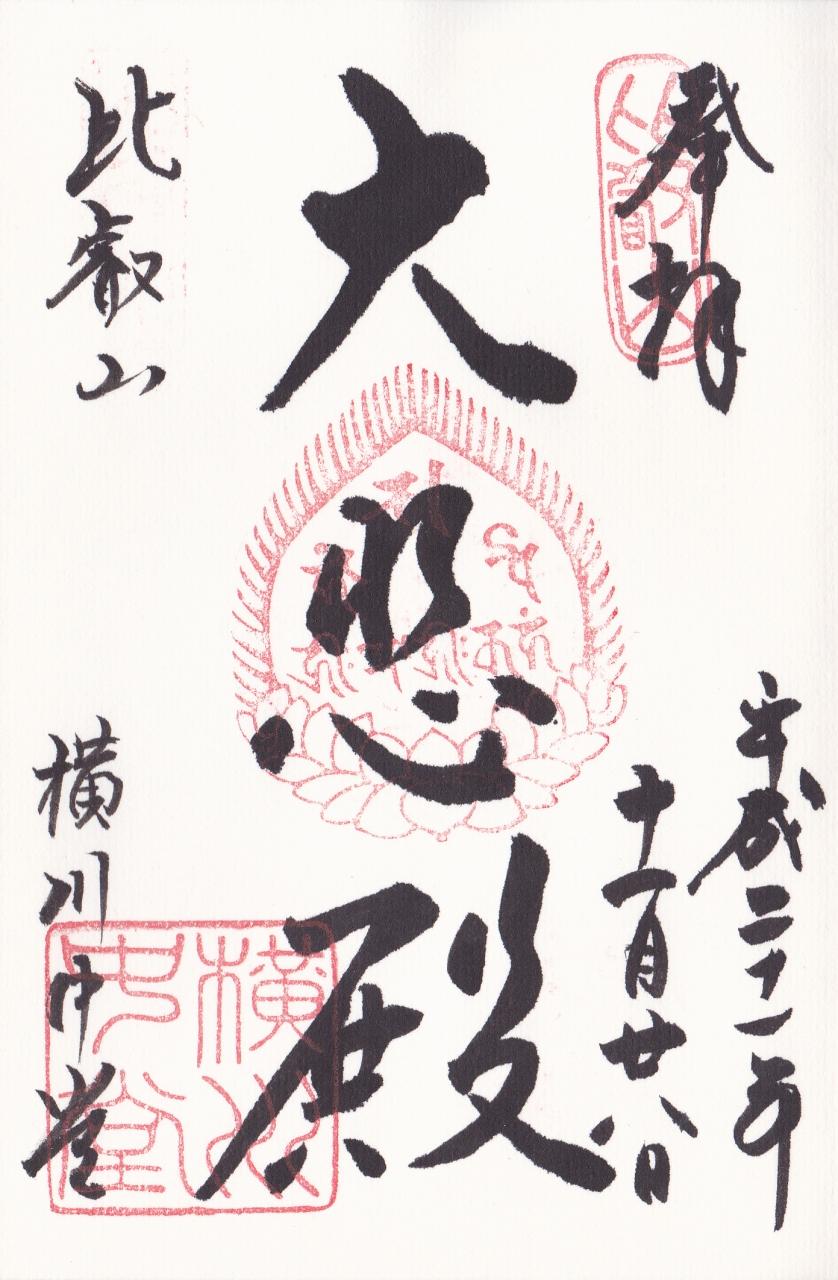 奉拝
平成二十一年
十一月廿八日
大悲殿
比叡山
横川中堂
比叡山
横川中堂